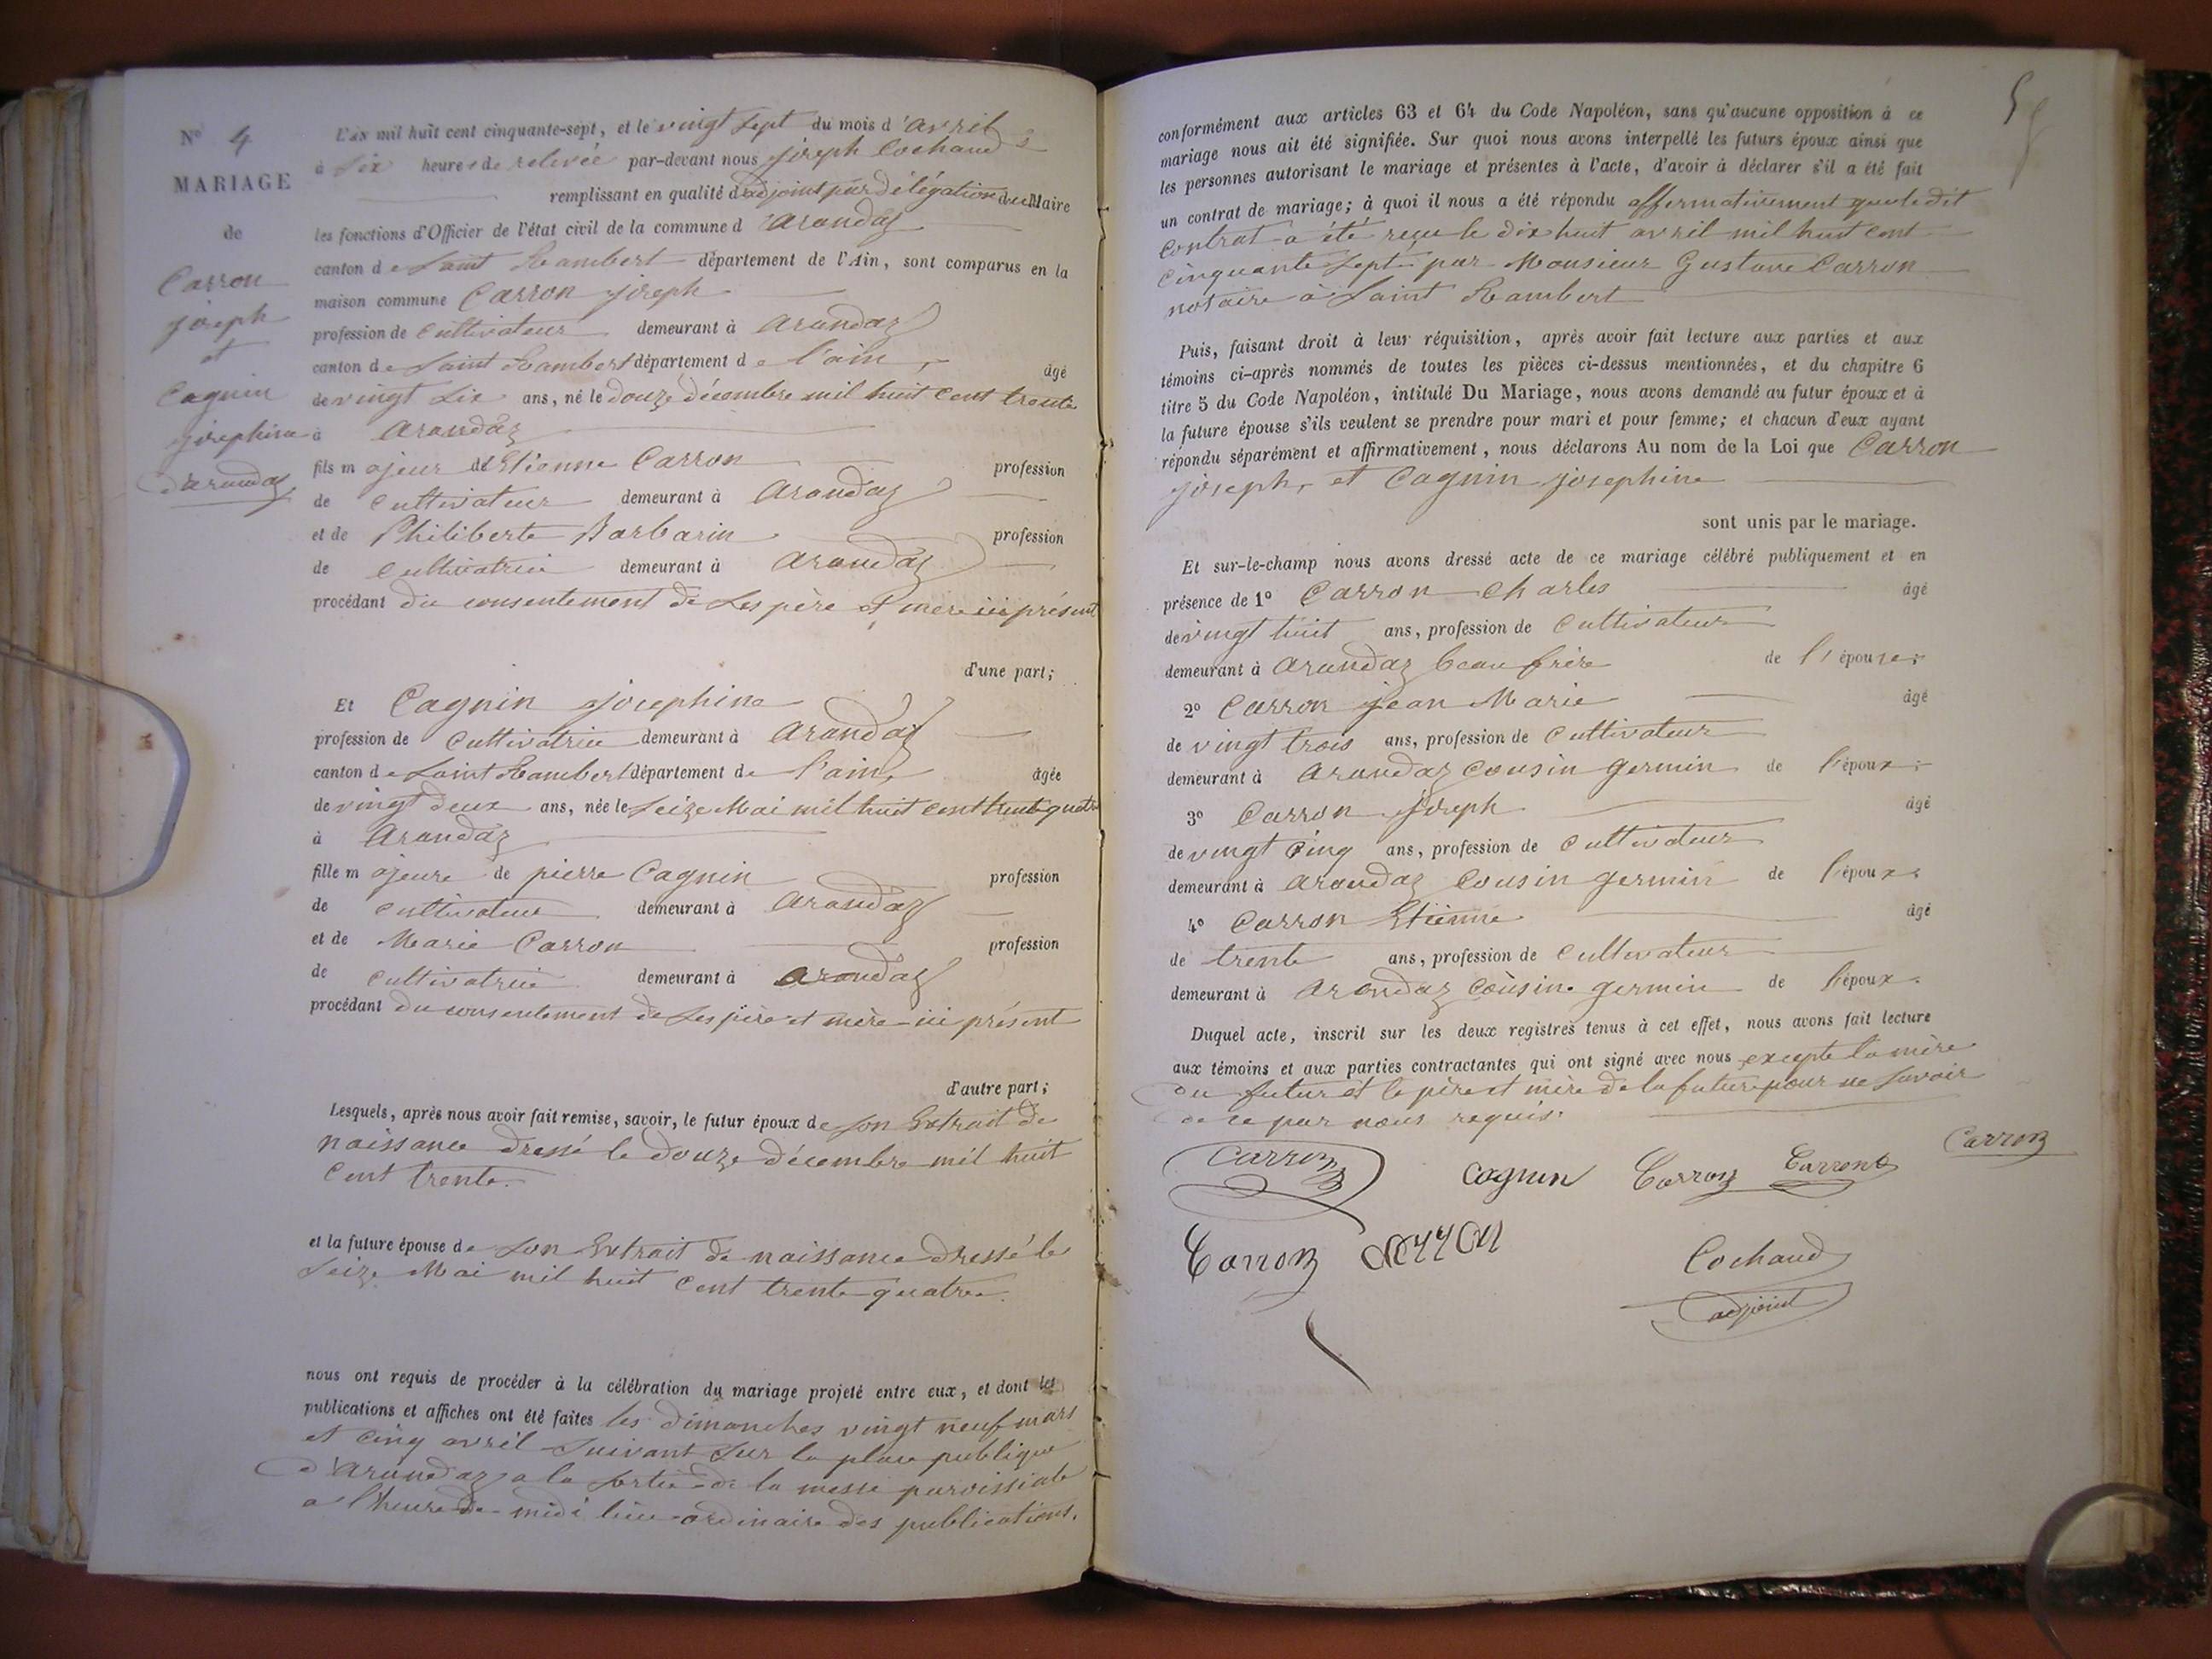 N° 4
MARIAGE
de
Carron
joseph
et
Cagnin
josephine
d'arandaz
L'AN mil huit cent cinquante-sept, et le vingt sept du mois d'avril
à six heures de relevée par-devant nous joseph Cochaud
remplissant en qualité d'adjoint par délégation du Maire
les fonctions d'Officier de l'état civil de la commune d arandaz
canton de saint Rambert département de l'Ain, sont comparus en la
maison commune Carron joseph
profession de cultivateur demeurant à arandaz
canton de saint Rambert département de l'ain, âgé
de vingt six ans, né le douze décembre mil huit cent trente
à arandaz
fils majeur de Etienne Carron profession
de cultivateur demeurant à arandaz
et de Philiberte Barbarin profession
de cultivatrice demeurant à arandaz
procédant du consentement de ses père et mère ici présent
d'une part;
Et Cagnin josephine
profession de cultivatrice demeurant à arandaz
canton de saint Rambert département de l'ain, âgée
de vingt deux ans, née le seize Mai mil huit cent trente quatre
à arandaz
fille majeure de pierre Cagnin profession
de cultivateur demeurant à arandaz
et de Marie Carron profession
de cultivatrice demeurant à arandaz
procédant du consentement de ses père et mère ici présent
d'autre part;
Lesquels, après nous avoir fait remise, savoir, le futur époux de son Extrait de
naissance dressé le douze décembre mil huit
cent trente.
et la future épouse de son Extrait de naissance dressé le
seize Mai mil huit cent trente quatre.
nous ont requis de procéder à la célébration du mariage projeté entre eux, et dont les
publications et affiches ont été faites les dimanches vingt neuf mars
et cinq avril suivant sur la place publique
d'arandaz a la sortie de la messe paroissiale
a l'heure de midi lieu ordinaire des publications.
conformément aux articles 63 et 64 du Code Napoléon, sans qu'aucune opposition à ce
mariage nous ait été signifiée. Sur quoi nous avons interpellé les futurs époux ainsi que
les personnes autorisant le mariage et présentes à l'acte, d'avoir à déclarer s'il a été fait
un contrat de mariage; à quoi il nous a été répondu affermativement que le dit
contrat a été reçu le dix huit avril mil huit cent
cinquante sept par Monsieur Gustave Carron
notaire à Saint Rambert
Puis, faisant droit à leur réquisition, après avoir fait lecture aux parties et aux
témoins ci-après nommés de toutes les pièces ci-dessus mentionnées, et du chapitre 6
titre 5 du Code Napoléon, intitulé Du Mariage, nous avons demandé au futur époux et à
la future épouse s'ils veulent se prendre pour mari et pour femme; et chacun d'eux ayant
répondu séparément et affirmativement, nous déclarons Au nom de la Loi que Carron
joseph, et Cagnin josephine
sont unis par le mariage.
Et sur-le-champ nous avons dressé acte de ce mariage célébré publiquement et en
présence de 1° Carron Charles âgé
de vingt huit ans, profession de cultivateur
demeurant à arandaz beau frère de l'épouse;
2° Carron jean Marie âgé
de vingt trois ans, profession de cultivateur
demeurant à arandaz cousin germin de l'époux;
3° Carron joseph âgé
de vingt cinq ans, profession de cultivateur
demeurant à arandaz cousin germin de l'époux;
4° Carron Etienne âgé
de trente ans, profession de cultivateur
demeurant à arandaz cousin germin de l'époux.
Duquel acte, inscrit sur les deux registres tenus à cet effet, nous avons fait lecture
aux témoins et aux parties contractantes qui ont signé avec nous excepte la mère
du futur et le père et mère de la future pour ne savoir
de ce par nous requis.
Carron
Carron Cagnin Carron Carron
Carron Carron Cochaud
adjoint